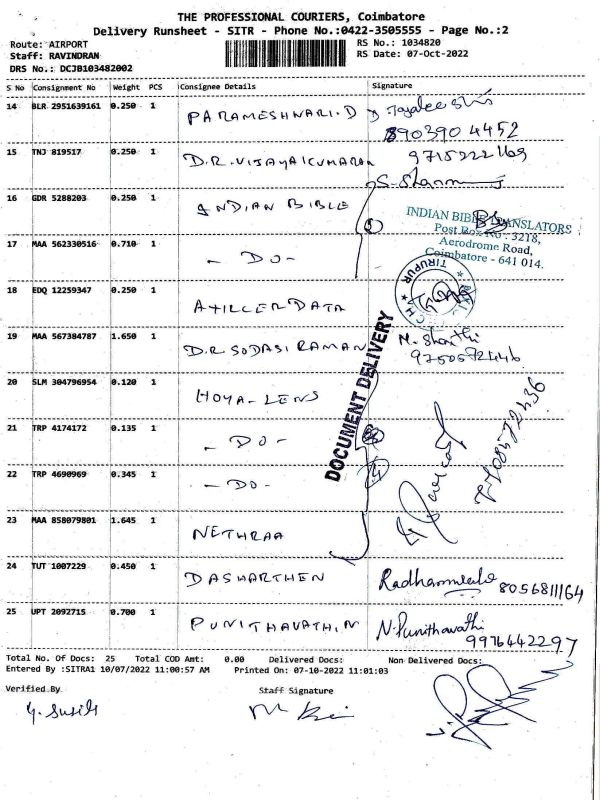 THE PROFESSIONAL COURIERS, Coimbatore
Delivery Runsheet - SITR - Phone No.:0422-3505555 - Page No.:2
Route: AIRPORT
Staff: RAVINDRAN
DRS No.: DCJB103482002
RS No.: 1034820
RS Date: 07-Oct-2022
S No Consignment No Weight PCS Consignee Details Signature
14 BLR 2951639161 0.250 1 PARAMESHWARI.D
890390 4452
15 TNJ 819517 0.250 1 D.R.VIJAYAKUMARAN
16 GDR 5288203 0.250 1 INDIAN BIBLE
INDIAN BIBLE TRANSLATORS
Post Box No : 3218,
Aerodrome Road,
Coimbatore - 641 014.
17 MAA 562330516 0.710 1 - DO -
TIRUPUR
18 EDQ 12259347 0.250 1
19 MAA 567384787 1.650 1 D.R SODASIRAMAN M. Shanthi
DOCUMENT DELIVERY
20 SLM 304796954 0.120 1 HOYA-LENS
21 TRP 4174172 0.135 1 - DO -
22 TRP 4690969 0.345 1 - DO -
23 MAA 858079801 1.645 1 NETHRAA
24 TUT 1007229 0.450 1 DASHARTHEN 8056811164
25 UPT 2092715 0.700 1 PUNITHAVATHI.N N.Punithavathi
9976442297
Total No. Of Docs: 25 Total COD Amt: 0.00 Delivered Docs: Non Delivered Docs:
Entered By :SITRA1 10/07/2022 11:00:57 AM Printed On: 07-10-2022 11:01:03
Verified By Staff Signature